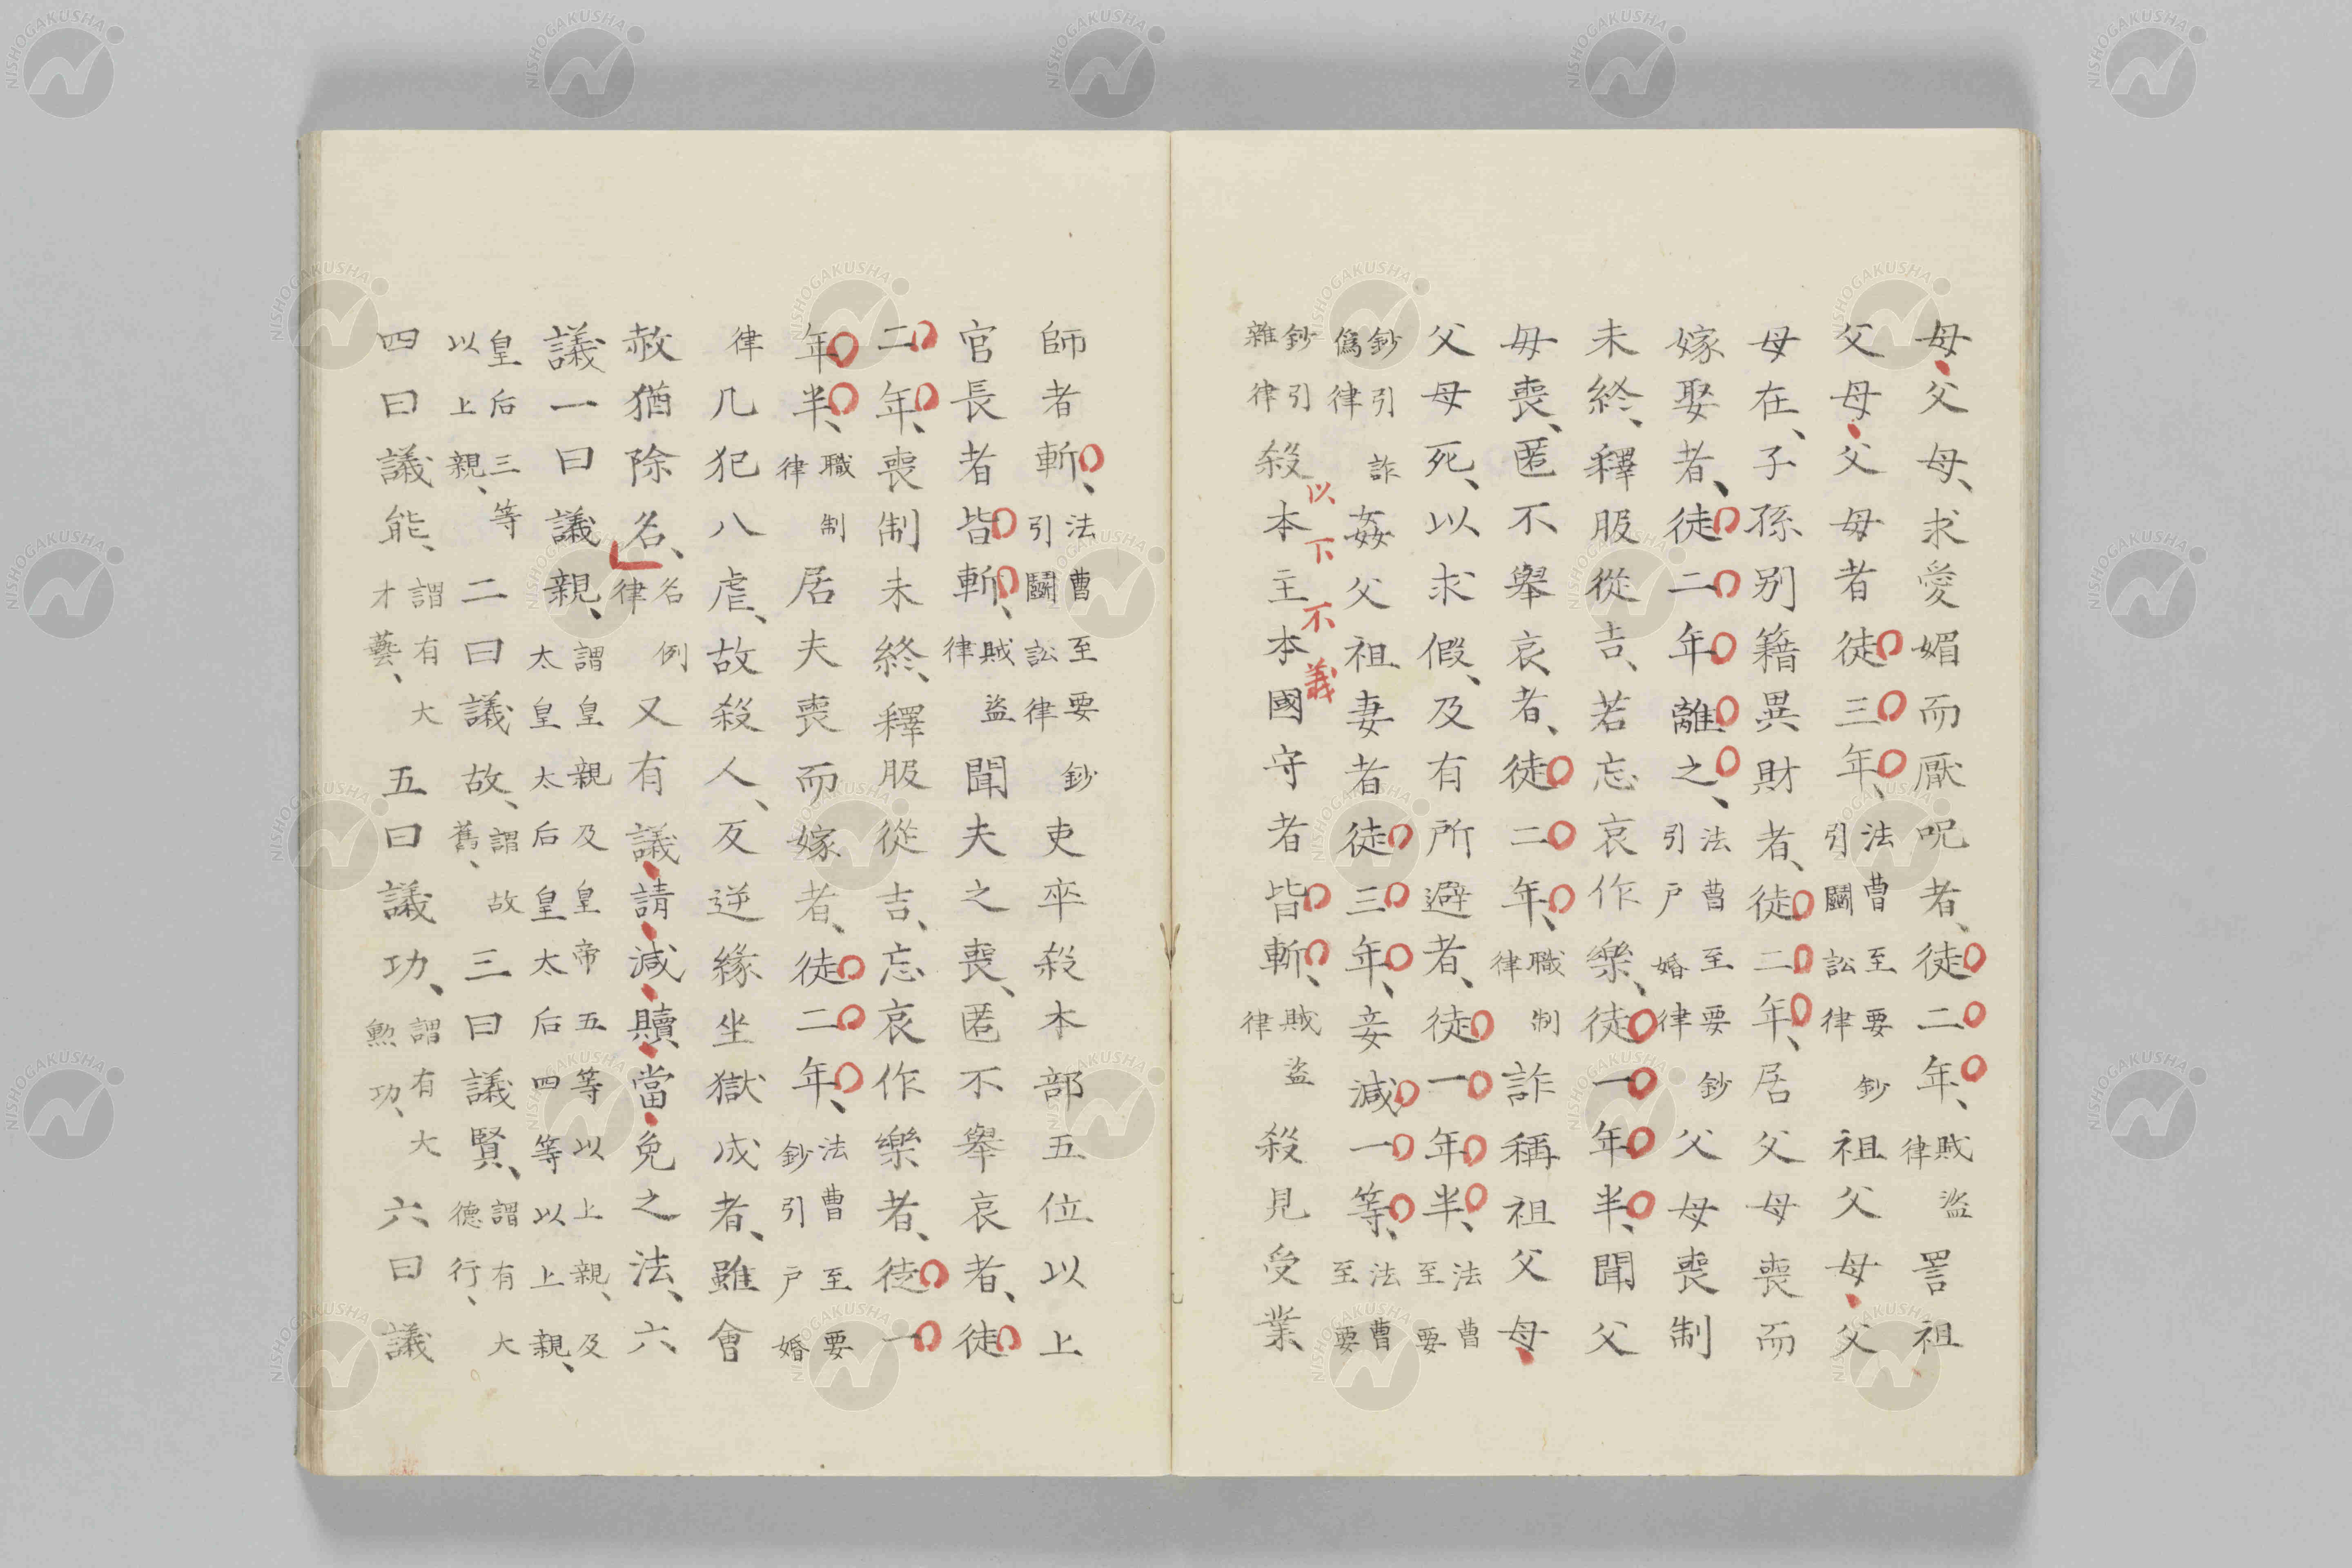 母父母、求愛媚而厭呪者、徒二年、賊盜律詈祖
父母父母者徒三年、法曹至要鈔引鬪訟律祖父母父
母在、子孫別籍異財者、徒二年、居父母喪而
嫁娶者、徒二年離之、法曹至要鈔引戶婚律父母喪制
未終、釋服從吉、若忘哀作樂、徒一年半、聞父
母喪、匿不舉哀者、徒二年、職制律詐稱祖父母
父母死、以求假、及有所避者、徒一年半、法曹至要
鈔引詐僞律姦父祖妻者徒三年、妾減一等、法曹至要
鈔引雜律殺本主本國守者皆斬、賊盜律殺見受業
以下不義
師者斬、法曹至要鈔引鬪訟律吏卒殺本部五位以上
官長者皆斬、賊盜律聞夫之喪、匿不舉哀者、徒
二年、喪制未終、釋服從吉、忘哀作樂者、徒一
年半、職制律居夫喪而嫁者、徒二年、法曹至要鈔引戶婚
律凡犯八虐、故殺人、反逆緣坐獄成者、雖會
赦猶除名、名例律又有議請減贖當免之法、六
議一曰議親、謂皇親及皇帝五等以上親、及太皇太后皇太后四等以上親、
皇后三等以上親、二曰議故、謂故舊、三曰議賢、謂有大德行、
四曰議能、謂有大才藝、五曰議功、謂有大勲功、六曰議
NISHOGAKUSHA